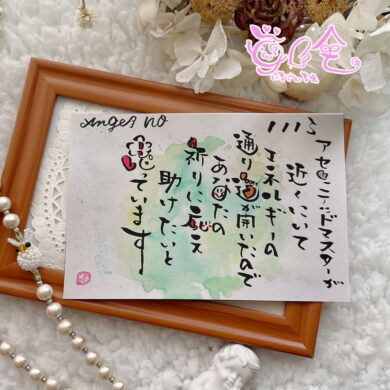 Angel no
1113
アセンデッドマスターが
近くにいて
エネルギーの
通り道が開いたので
あなたの
祈りに応え
助けたいと
思っています